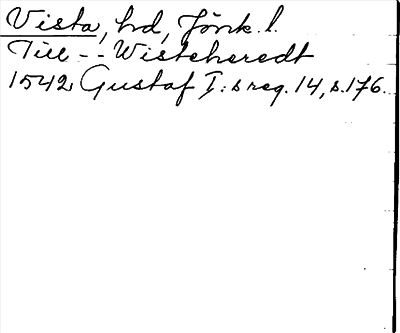 Vista, hd, Jönk. l.
Till - - Wisteheredt
1542 Gustaf I:s reg. 14, s. 176.